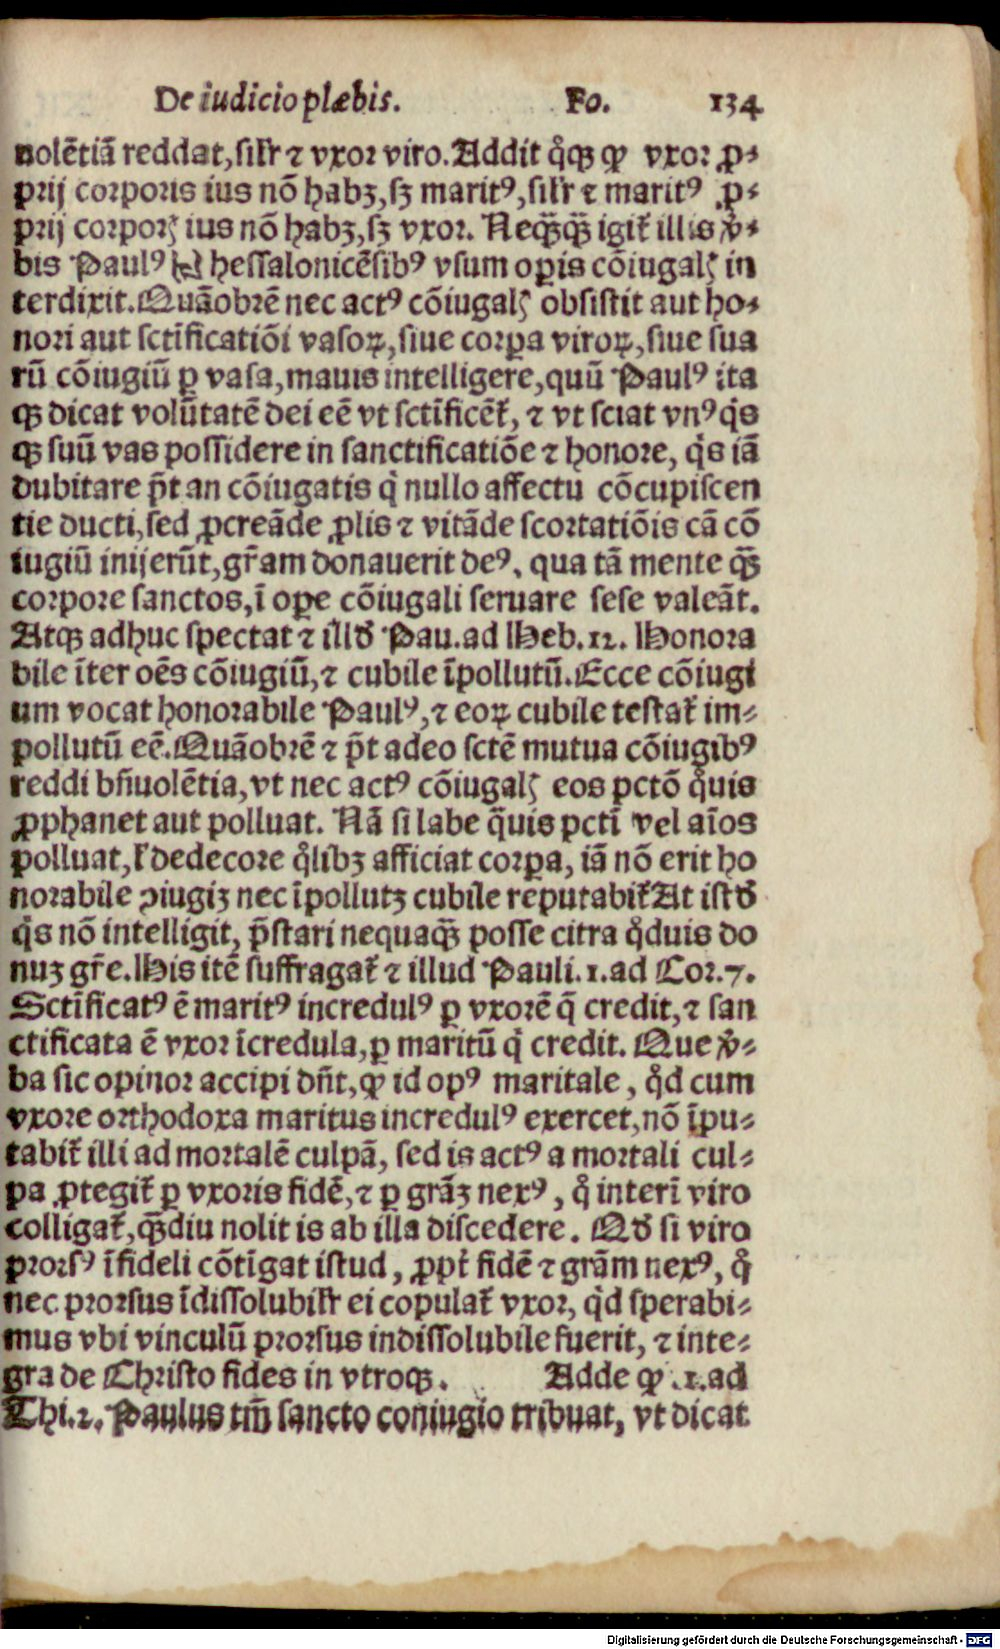 De iudicio plæbis. Fo. 134
uolẽtiã reddat, silr ⁊ vxor viro. Addit qͦqꝫ ꝙ vxor ꝓ-
prij corporis ius nõ habꝫ, sꝫ maritꝰ, silr ⁊ maritꝰ ꝓ-
prij corporꝭ ius nõ habꝫ, sꝫ vxor. Neqꝫ̃qꝫ̃ igit᷑ illis v̾-
bis Paulꝰ Thessalonicẽsibꝰ vsum oꝑis cõiugalꝭ in
terdixit. Quãobrẽ nec actꝰ cõiugalꝭ obsistit aut ho-
nori aut sctĩficatiõi vasoꝝ, siue corꝑa viroꝝ, siue sua
rũ cõiugiũ ꝑ vasa, mauis intelligere, quũ Paulꝰ ita
qꝫ dicat volũtatẽ dei eẽ vt sctĩficẽt᷑, ⁊ vt sciat vnꝰ qͥs
qꝫ suũ vas possidere in sanctificatiõe ⁊ honore, qͥs iã
dubitare p̃t an cõiugatis qͥ nullo affectu cõcupiscen
tie ducti, sed ꝓcreãde ꝓlis ⁊ vitãde scortatiõis cã cõ
iugiũ inijerũt, gr̃am donauerit deꝰ, qua tã mente qꝫ̃
corpore sanctos, ĩ oꝑe cõiugali seruare sese valeãt.
Atqꝫ adhuc spectat ⁊ illđ Pau. ad Heb. 12. Honora
bile ĩter oẽs cõiugiũ, ⁊ cubile ĩpollutũ. Ecce cõiugi
um vocat honorabile Paulꝰ, ⁊ eoꝝ cubile testat᷑ im-
pollutũ eẽ. Quãobrẽ ⁊ p̃t adeo sctẽ mutua cõiugibꝰ
reddi bñuolẽtia, vt nec actꝰ cõiugalꝭ eos pctõ qͣuis
ꝓphanet aut polluat. Nã si labe q̃uis pctĩ vel aĩos
polluat, ł dedecore qͦlibꝫ afficiat corꝑa, iã nõ erit ho
norabile ꝯiugiꝫ nec ĩpollutꝫ cubile reputabit᷑ At istđ
qͥs nõ intelligit, p̃stari nequaqꝫ̃ posse citra qͦduis do
nuꝫ gr̃e. His itẽ suffragat᷑ ⁊ illud Pauli. 1. ad Cor. 7.
Sctĩficatꝰ ẽ maritꝰ incredulꝰ ꝑ vxorẽ q̃ credit, ⁊ san
ctificata ẽ vxor ĩcredula, ꝑ maritũ qͥ credit. Que v̾-
ba sic opinor accipi dñt, ꝙ id opꝰ maritale, qͦd cum
vxore orthodoxa maritus incredulꝰ exercet, nõ ĩpu-
tabit᷑ illi ad mortalẽ culpã, sed is actꝰ a mortali cul-
pa ꝓtegit᷑ ꝑ vxoris fidẽ, ⁊ ꝑ grãꝫ nexꝰ, qͦ interĩ viro
colligat᷑, qꝫ̃diu nolit is ab illa discedere. Qđ si viro
prorsꝰ ĩfideli cõtĩgat istud, ꝓpt᷑ fidẽ ⁊ grãm nexꝰ, qͦ
nec prorsus ĩdissolubilr ei copulat᷑ vxor, qͥd sperabi-
mus vbi vinculũ prorsus indissolubile fuerit, ⁊ inte-
gra de Christo fides in vtroqꝫ. Adde ꝙ .1. ad
Thi. 2. Paulus tm̃ sancto coniugio tribuat, vt dicat
Digitalisierung gefördert durch die Deutsche Forschungsgemeinschaft - DFG